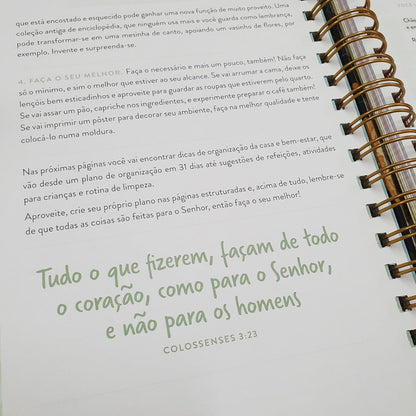 que está encostado e esquecido pode ganhar uma nova função de muito proveito. Uma
coleção antiga de enciclopédia, que ninguém usa mais e você guarda como lembrança,
pode transformar-se em uma mesinha de canto, apoiando um vasinho de flores, por
exemplo. Invente e surpreenda-se.
4. FAÇA O SEU MELHOR. Faça o necessário e mais um pouco, também! Não faça
só o mínimo, e sim o melhor que estiver ao seu alcance. Se vai arrumar a cama, deixe os
lençóis bem esticadinhos e aproveite para guardar as roupas que estiverem pelo quarto.
Se vai assar um pão, capriche nos ingredientes, e experimente preparar o café também!
Se vai imprimir um pôster para decorar seu ambiente, faça na melhor qualidade e tente
colocá-lo numa moldura.
Nas próximas páginas você vai encontrar dicas de organização da casa e bem-estar, que
vão desde um plano de organização em 31 dias até sugestões de refeições, atividades
para crianças e rotina de limpeza.
Aproveite, crie seu próprio plano nas páginas estruturadas e, acima de tudo, lembre-se
de que todas as coisas são feitas para o Senhor, então faça o seu melhor!
Tudo o que fizerem, façam de todo
o coração, como para o Senhor,
e não para os homens
COLOSSENSES 3:23